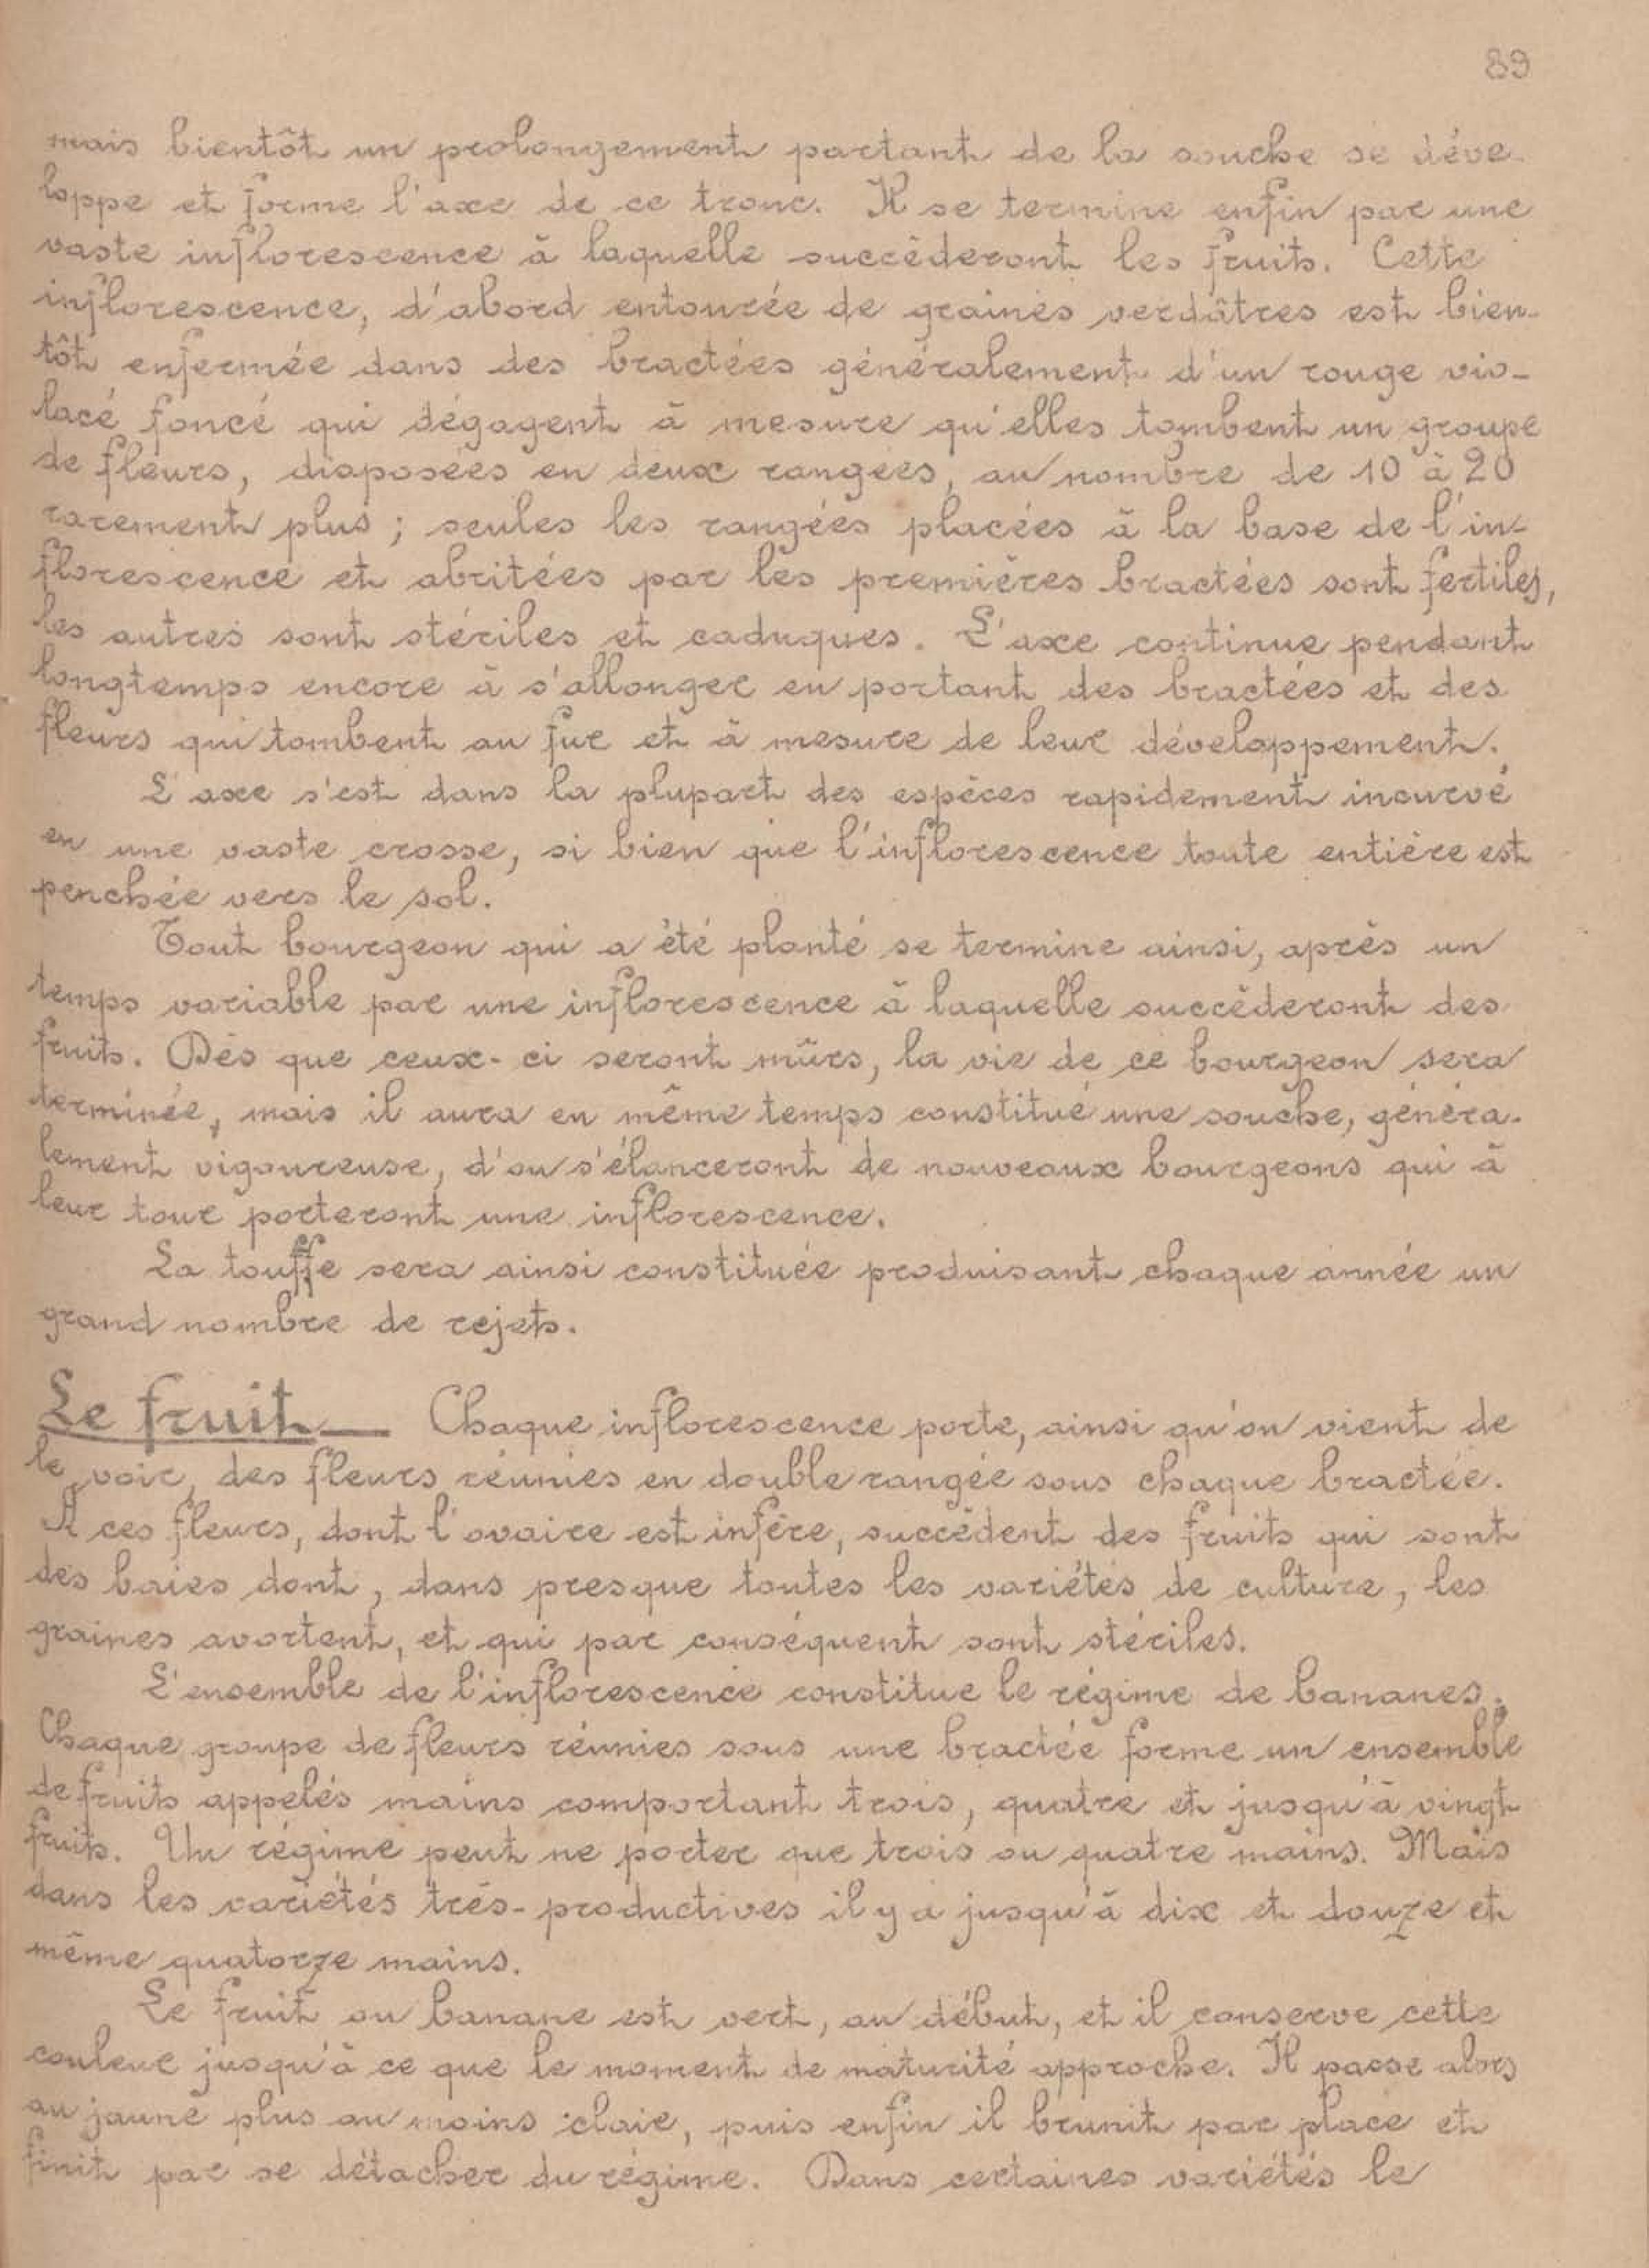 89
mais bientôt un prolongement partant de la souche se déve-
loppe et forme l'axe de ce tronc. Il se termine enfin par une
vaste inflorescence à laquelle succèderont les fruits. Cette
inflorescence, d'abord entourée de graines verdâtres est bien-
tôt enfermée dans des bractées généralement d'un rouge vio-
lacé foncé qui dégagent à mesure qu'elles tombent un groupe
de fleurs, disposées en deux rangées, au nombre de 10 à 20
rarement plus ; seules les rangées placées à la base de l'in-
florescence et abritées par les premières bractées sont fertiles,
les autres sont stériles et caduques. L'axe continue pendant
longtemps encore à s'allonger en portant des bractées et des
fleurs qui tombent au fur et à mesure de leur développement.
L'axe s'est dans la plupart des espèces rapidement incurvé
en une vaste crosse, si bien que l'inflorescence toute entière est
penchée vers le sol.
Tout bourgeon qui a été planté se termine ainsi, après un
temps variable par une inflorescence à laquelle succèderont des
fruits. Dès que ceux-ci seront mûrs, la vie de ce bourgeon sera
terminée, mais il aura en même temps constitué une souche, généra-
lement vigoureuse, d'ou s'élanceront de nouveaux bourgeons qui à
leur tour porteront une inflorescence.
La touffe sera ainsi constituée produisant chaque année un
grand nombre de rejets.
Le fruit — Chaque inflorescence porte, ainsi qu'on vient de
le voir, des fleurs réunies en double rangée sous chaque bractée.
A ces fleurs, dont l'ovaire est infère, succèdent des fruits qui sont
des baies dont, dans presque toutes les variétés de culture, les
graines avortent, et qui par conséquent sont stériles.
L'ensemble de l'inflorescence constitue le régime de bananes.
Chaque groupe de fleurs réunies sous une bractée forme un ensemble
de fruits appelés mains comportant trois, quatre et jusqu'à vingt
fruits. Un régime peut ne porter que trois ou quatre mains. Mais
dans les variétés très-productives il y a jusqu'à dix et douze et
même quatorze mains.
Le fruit ou banane est vert, au début, et il conserve cette
couleur jusqu'à ce que le moment de maturité approche. Il passe alors
au jaune plus au moins clair, puis enfin il brunit par place et
finit par se détacher du régime. Dans certaines variétés le